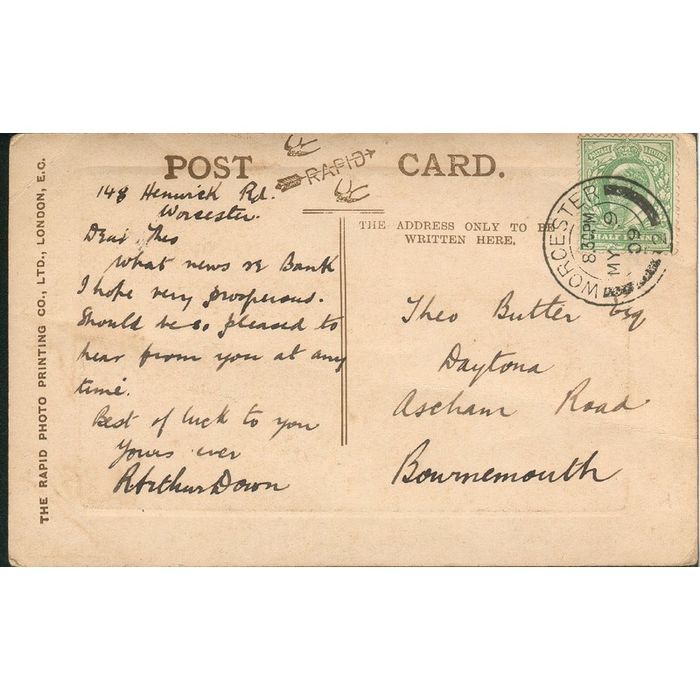 POST CARD.
RAPID
THE ADDRESS ONLY TO BE
WRITTEN HERE.
THE RAPID PHOTO PRINTING CO., LTD., LONDON, E.C.
148 Henwick Rd.
Worcester.
Dear Theo
What news re Bank
I hope very prosperous.
Should be so pleased to
hear from you at any
time.
Best of luck to you
Yours ever
Arthur Down
Theo Butter Esq
Daytona
Ascham Road
Bournemouth
WORCESTER
8.30PM
MY 6
09
HALF PENNY